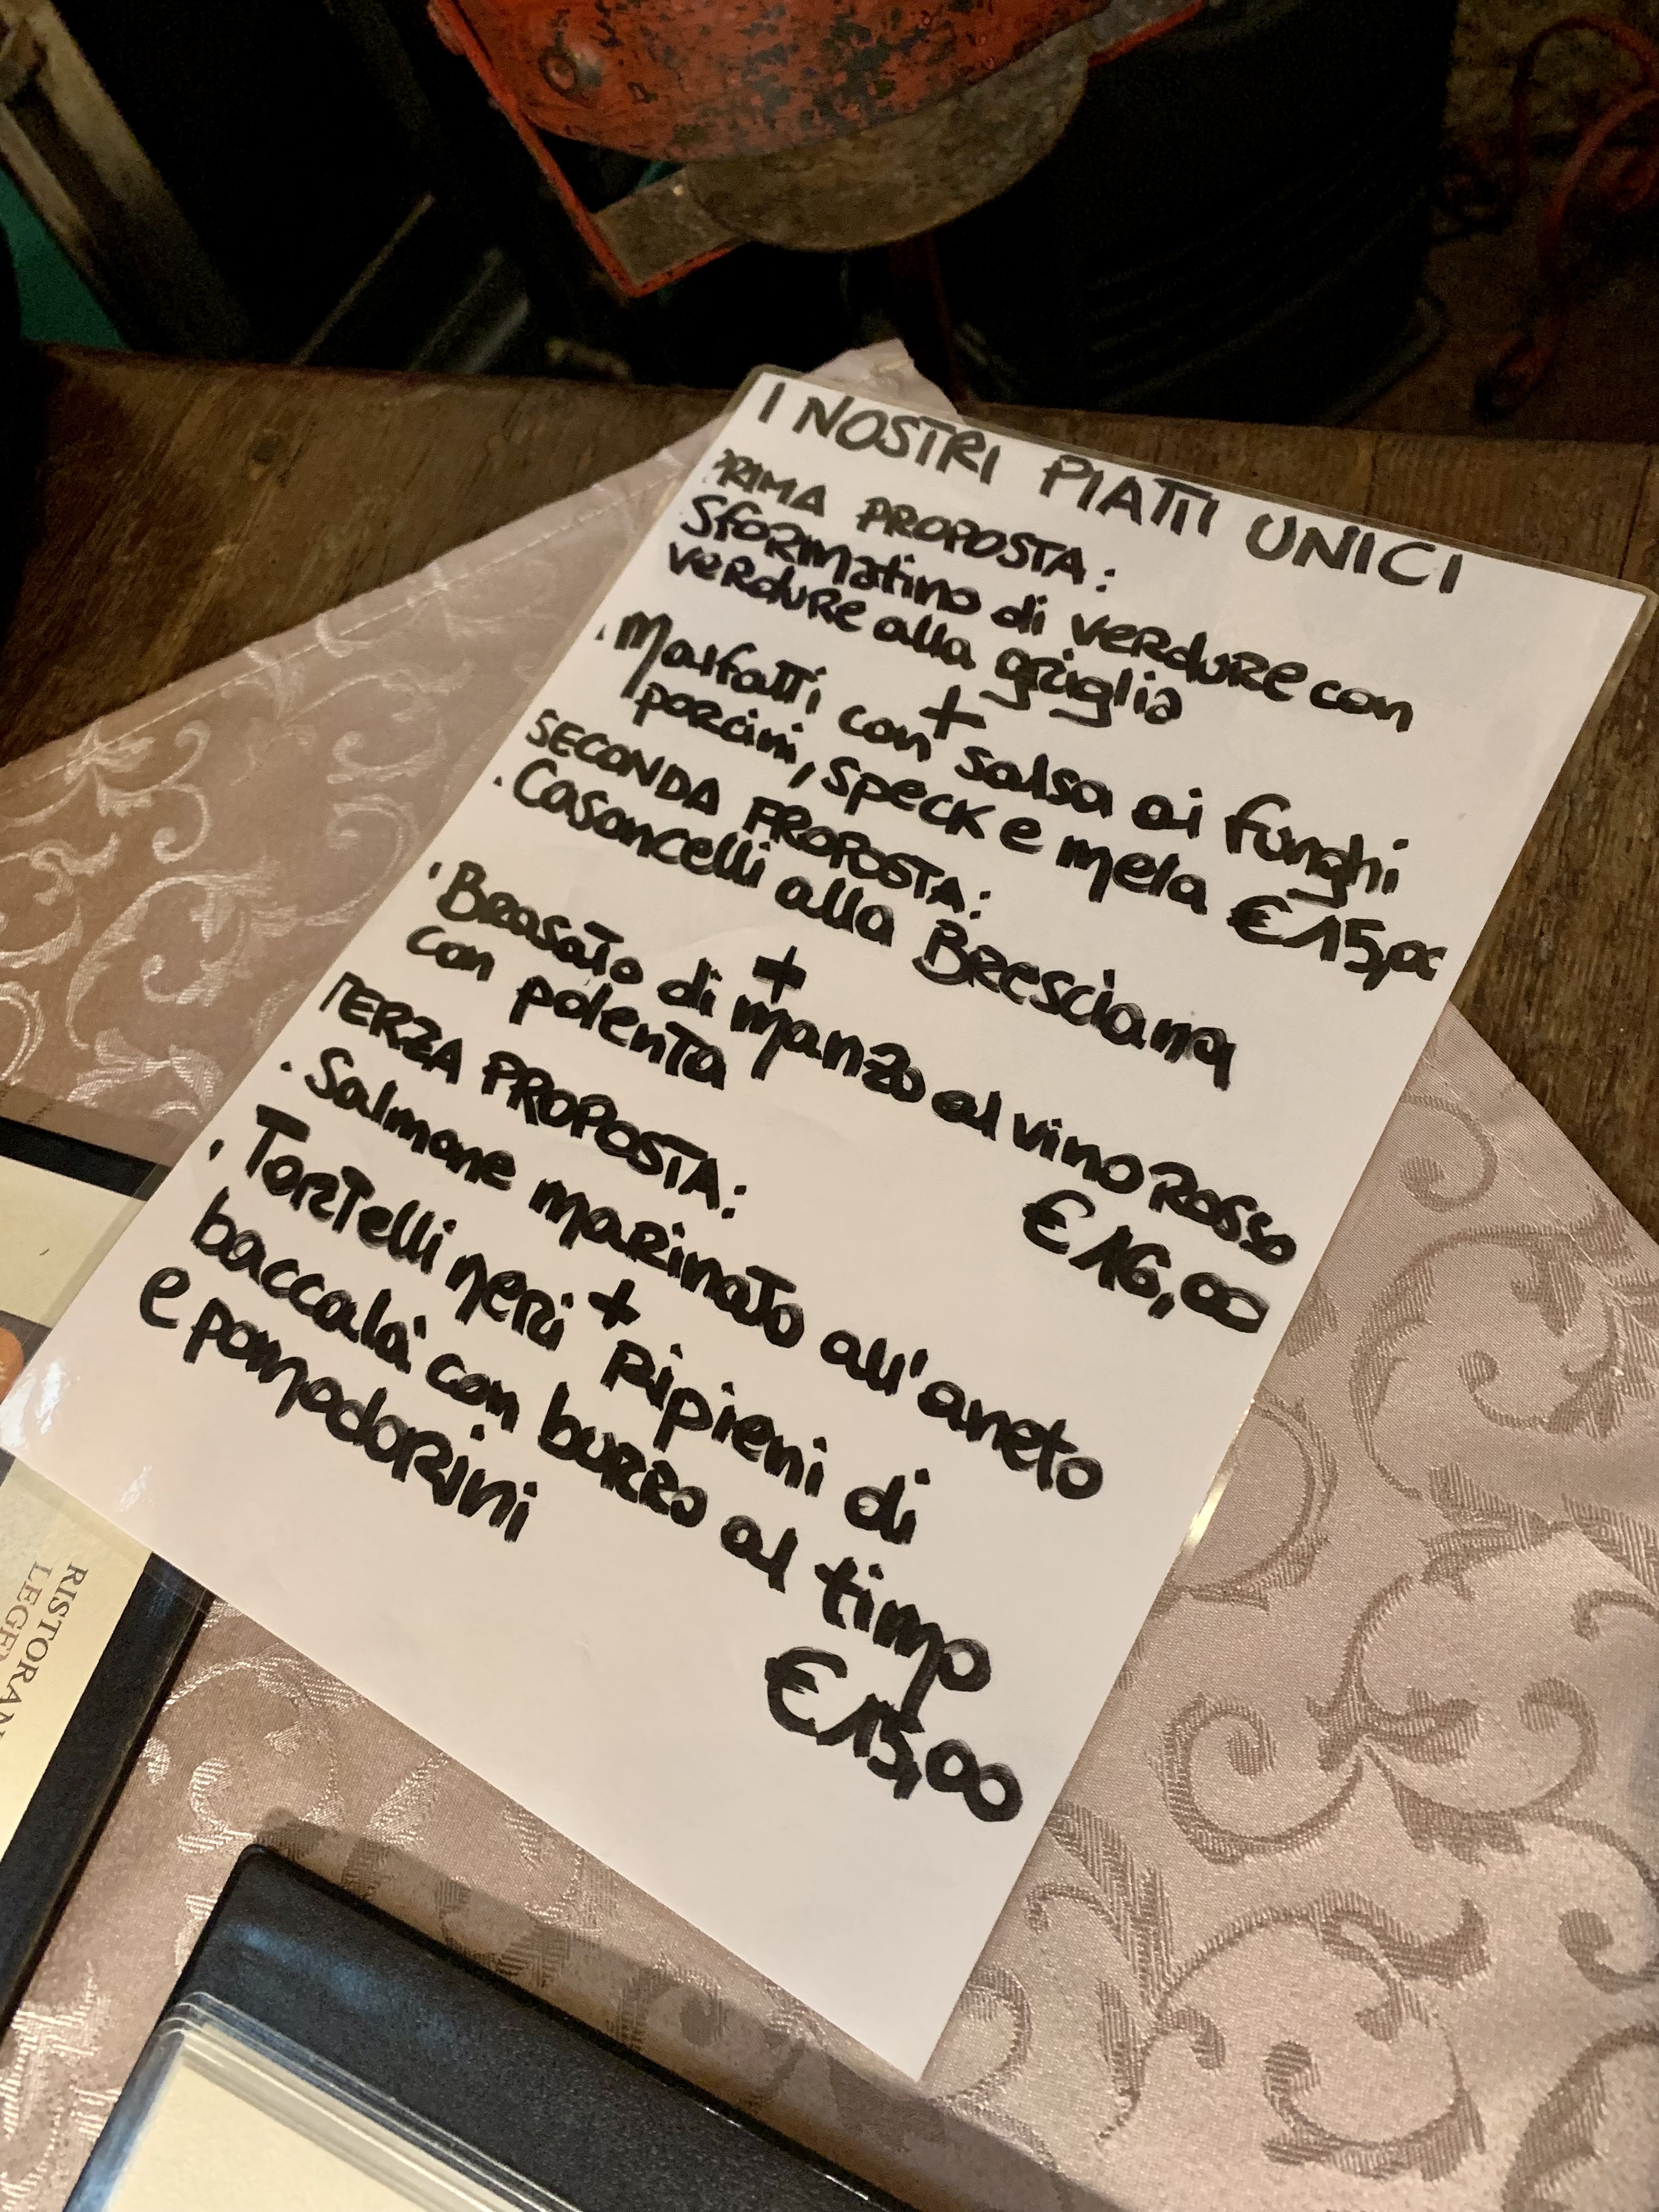 I NOSTRI PIATTI UNICI
PRIMA PROPOSTA:
Sformatino di verdure con
verdure alla griglia
+
. Malfatti con salsa ai funghi
porcini, speck e mela €15,00
SECONDA PROPOSTA:
. Casoncelli alla Bresciana
+
. Brasato di manzo al vino rosso
con polenta
€16,00
TERZA PROPOSTA:
. Salmone marinato all'aneto
+
. Tortelli neri ripieni di
baccalà con burro al timo
e pomodorini
€15,00
RISTORAN